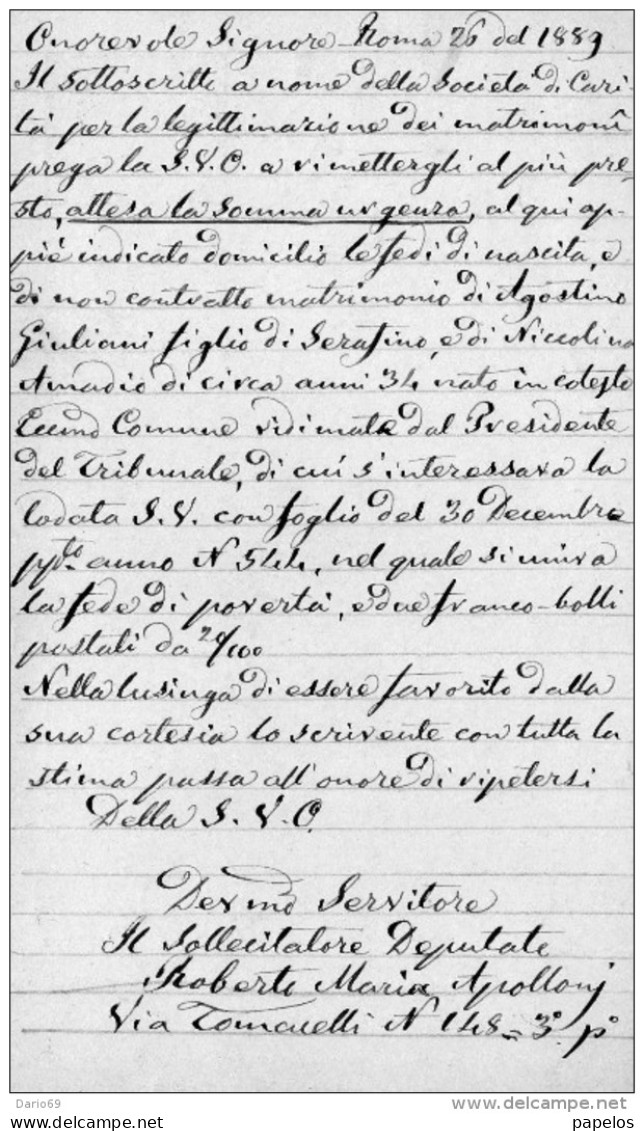 Onorevole Signore - Roma 26 del 1889
Il sottoscritto a nome della Società di Cari-
tà per la legittimazione dei matrimonî
prega la S.V.O. a rimettergli al più pre-
sto, attesa la somma urgenza, al qui ap-
piè indicato domicilio le fedi di nascita, e
di non contratto matrimonio di Agostino
Giuliani figlio di Serafino, e di Niccolina
Amadio di circa anni 34 nato in cotesto
Ecc̃mo Comune vidimata dal Presidente
del Tribunale, di cui s'interessava la
lodata S.V. con foglio del 30 Decembre
pp.to anno N 544, nel quale si univa
la fede di povertà, e due franco-bolli
postali da 20/100
Nella lusinga di essere favorito dalla
sua cortesia lo scrivente con tutta la
stima passa all'onore di ripetersi
Della S.V.O.
Deṽmo Servitore
Il Sollecitatore Deputato
Roberto Maria Apollonj
Via Tomacelli N 148 = 3° p°
Dario69
delcampe.net
www.delcampe.com
papelos